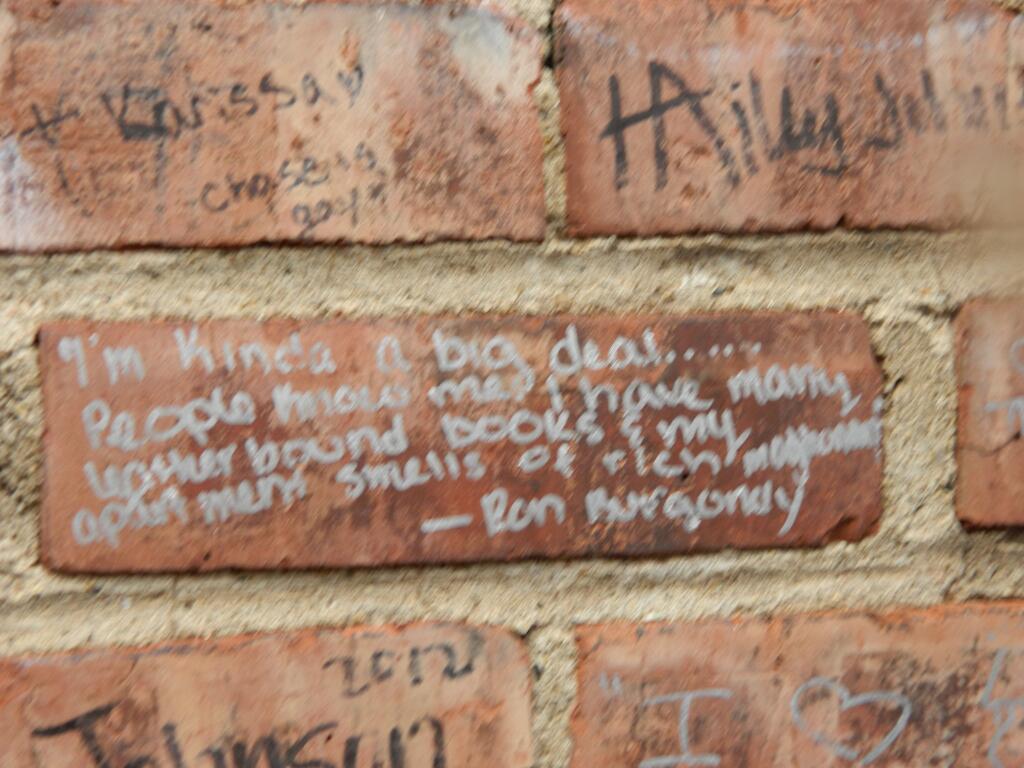 + Karissa
chase is
gay"
HAilley
I'm Kinda a big deal......
People know me I have many
leatherbound books & my
apartment smells of rich mahogany
— Ron Burgondy
2012
Johnson
"I ♡